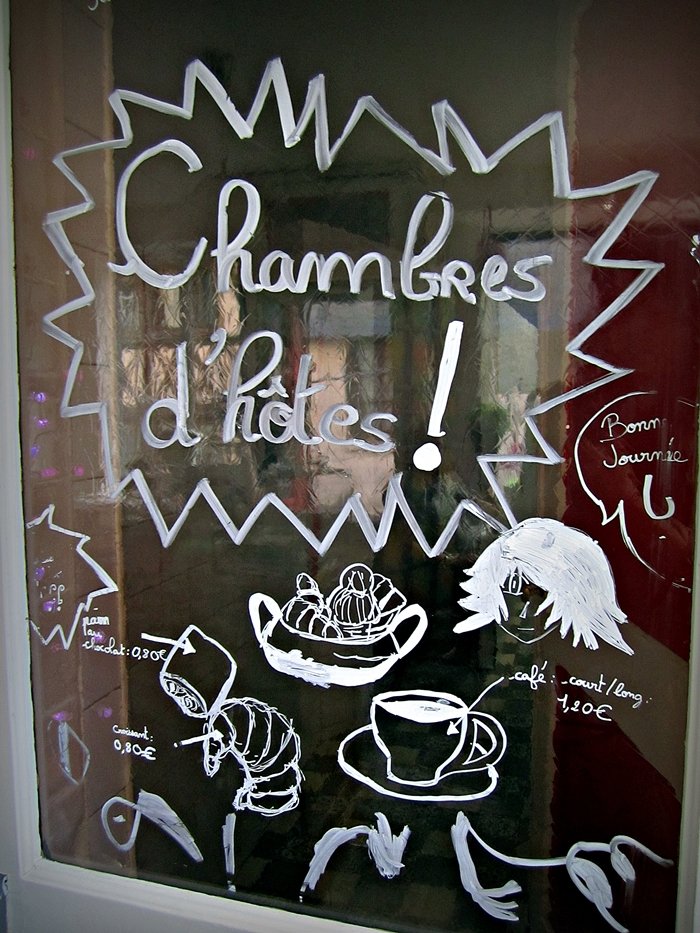 Chambres
d'hôtes!
Bonne
Journée
pain
au
chocolat: 0,80€
café: court/long:
1,20€
Croissant:
0,80€